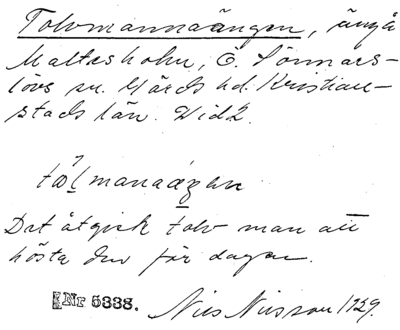 Tolvmannaängen, äng å
Maltesholm, Ö. Sönnars-
lövs sn. Gärds hd. Kristian-
stads län. Wid 2.
Det åtgick tolv man att
hösta den för dagen.
Nr 5338. Nils Nilsson 1929.